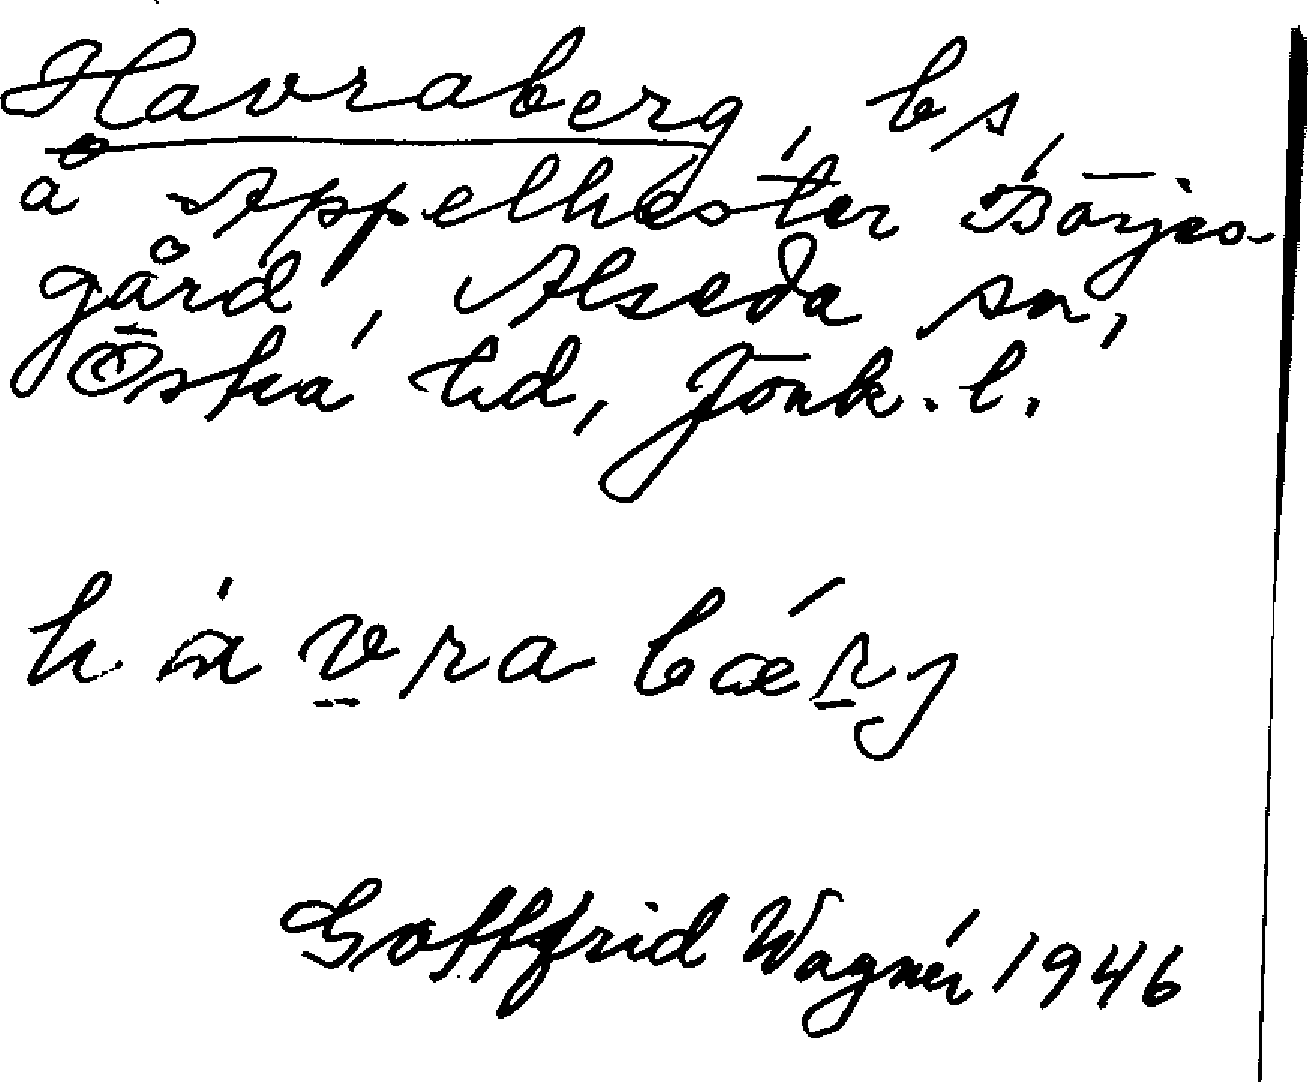 Havraberg, bs,
å Äppelhester Börjes-
gård, Alseda sn,
Östra hd, Jönk. l.
hàvra bǽrj
Gottfrid Wagnér 1946